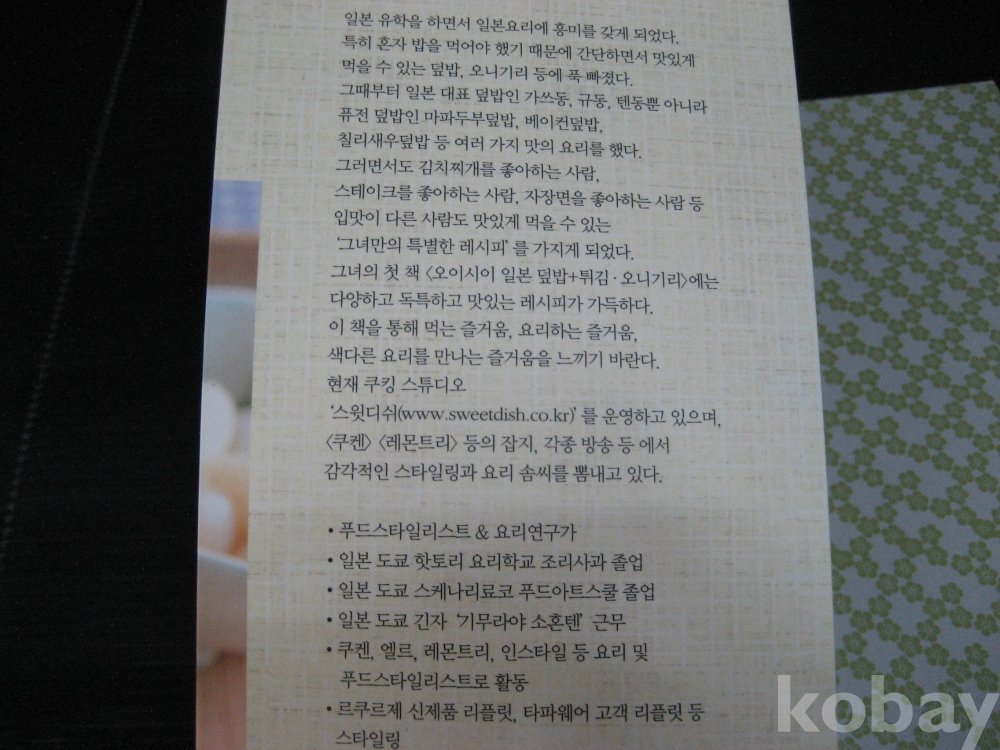 일본 유학을 하면서 일본요리에 흥미를 갖게 되었다.
특히 혼자 밥을 먹어야 했기 때문에 간단하면서 맛있게
먹을 수 있는 덮밥, 오니기리 등에 푹 빠졌다.
그때부터 일본 대표 덮밥인 가쓰동, 규동, 텐동뿐 아니라
퓨전 덮밥인 마파두부덮밥, 베이컨덮밥,
칠리새우덮밥 등 여러 가지 맛의 요리를 했다.
그러면서도 김치찌개를 좋아하는 사람,
스테이크를 좋아하는 사람, 자장면을 좋아하는 사람 등
입맛이 다른 사람도 맛있게 먹을 수 있는
‘그녀만의 특별한 레시피’를 가지게 되었다.
그녀의 첫 책 〈오이시이 일본 덮밥+튀김·오니기리〉에는
다양하고 독특하고 맛있는 레시피가 가득하다.
이 책을 통해 먹는 즐거움, 요리하는 즐거움,
색다른 요리를 만나는 즐거움을 느끼기 바란다.
현재 쿠킹 스튜디오
‘스윗디쉬(www.sweetdish.co.kr)’를 운영하고 있으며,
〈쿠켄〉 〈레몬트리〉 등의 잡지, 각종 방송 등 에서
감각적인 스타일링과 요리 솜씨를 뽐내고 있다.
• 푸드스타일리스트 & 요리연구가
• 일본 도쿄 핫토리 요리학교 조리사과 졸업
• 일본 도쿄 스케나리료코 푸드아트스쿨 졸업
• 일본 도쿄 긴자 ‘기무라야 소혼텐’ 근무
• 쿠켄, 엘르, 레몬트리, 인스타일 등 요리 및
푸드스타일리스트로 활동
• 르쿠르제 신제품 리플릿, 타파웨어 고객 리플릿 등
스타일링
kobay